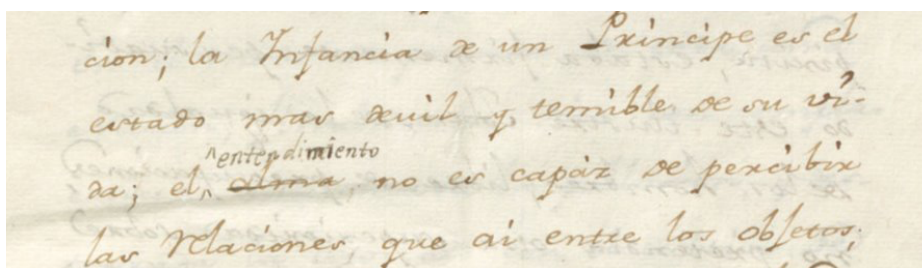 cion; la Infancia de un Principe es el
estado mas devil y temible de su vi-
da; el ^entendimiento alma no es capáz de percibir
las relaciones, que ai entre los objetos;